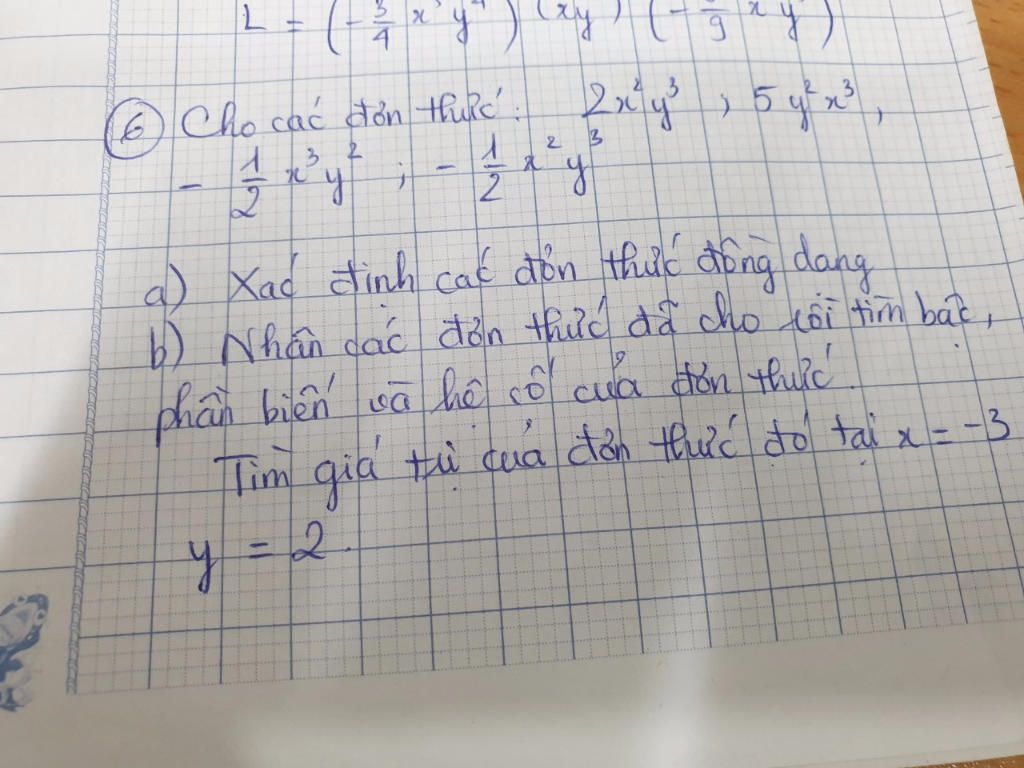 L = (-3/4 x y) (xy) (- /9 x y)
6 Cho các đơn thức: 2x²y³ ; 5y²x³,
- 1/2 x³y² ; - 1/2 x²y³
a) Xác định các đơn thức đồng dạng
b) Nhân các đơn thức đã cho rồi tìm bậc,
phần biến và hệ số của đơn thức.
Tìm giá trị của đơn thức đó tại x = -3
y = 2.